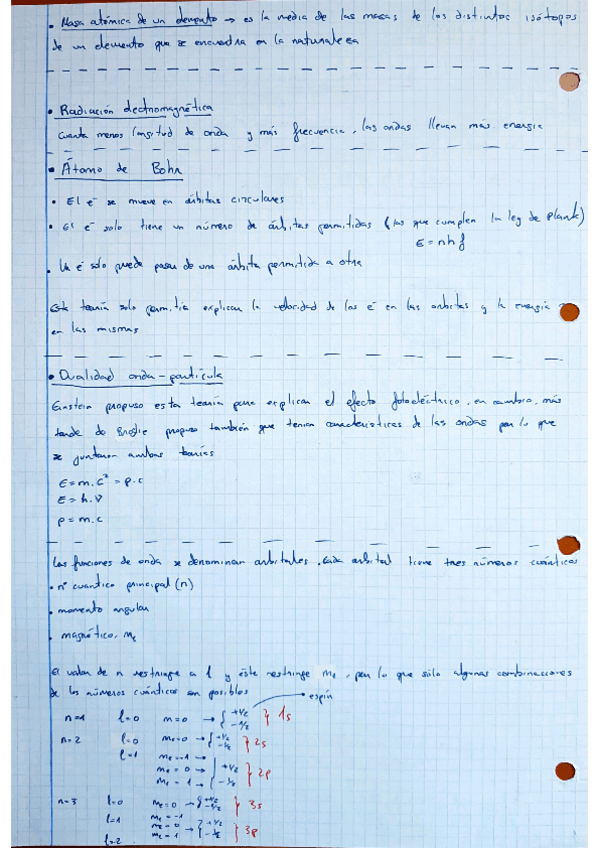 • Masa atómica de un elemento → es la media de las masas de los distintos isótopos
de un elemento que se encuentra en la naturaleza
• Radiación electromagnética
Cuanta menos longitud de onda y más frecuencia, las ondas llevan más energía
• Átomo de Bohr
• El e⁻ se mueve en órbitas circulares
• El e⁻ solo tiene un número de órbitas permitidas (las que cumplen la ley de Plank)
E = nhf
• Un e⁻ sólo puede pasar de una órbita permitida a otra
Esta teoría solo permitía explicar la velocidad de los e⁻ en las orbitas y la energía
en las mismas
• Dualidad onda-partícula
Einstein propuso esta teoría para explicar el efecto fotoeléctrico, en cambio, más
tarde de Broglie propuso también que tenían características de las ondas por lo que
se juntaron ambas teorías
E = m.c² = p.c
E = h.ν
p = m.c
Las funciones de onda se denominan orbitales. Cada orbital tiene tres números cuánticos
• nº cuantico principal (n)
• momento angular
• magnético, mℓ
El valor de n restringe a l y éste restringe mℓ, por lo que sólo algunas combinaciones
de los números cuánticos son posibles
• espín
n=1 l=0 m=0 → { +1/2 -1/2 } 1s
n=2 l=0 mℓ=0 → { +1/2 -1/2 } 2s
l=1 mℓ=-1 →
mℓ=0 → +1/2
mℓ=1 → -1/2 } 2p
n=3 l=0 mℓ=0 → { +1/2 -1/2 } 3s
l=1 mℓ=-1
mℓ=0 → { +1/2
mℓ=1 -1/2 } 3p
l=2